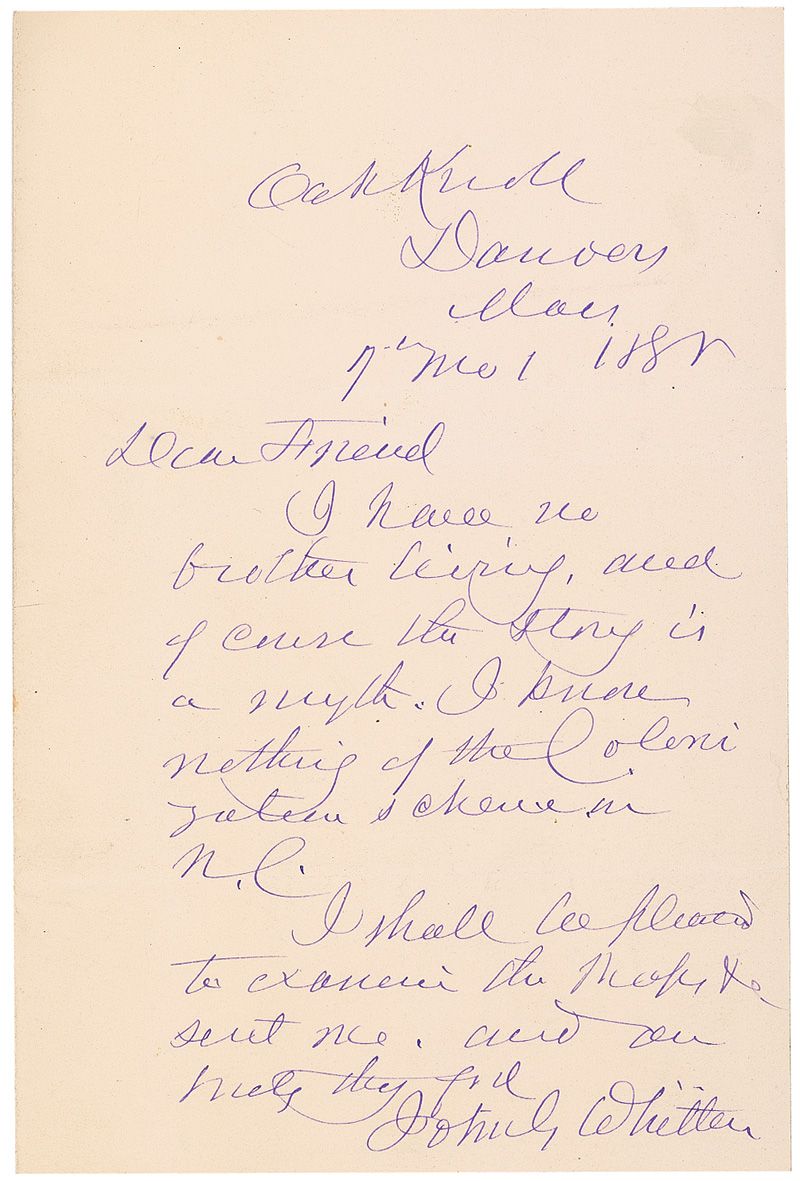 Oak Knoll
Danvers
Mass
7th Mo 1 188
Dear Friend
I have no
brother living, and
of course the story is
a myth. I know
nothing of the Coloni
zation scheme in
N.C.
I shall be pleased
to examine the
sent me. and am
truly thy frd
John G Whittier